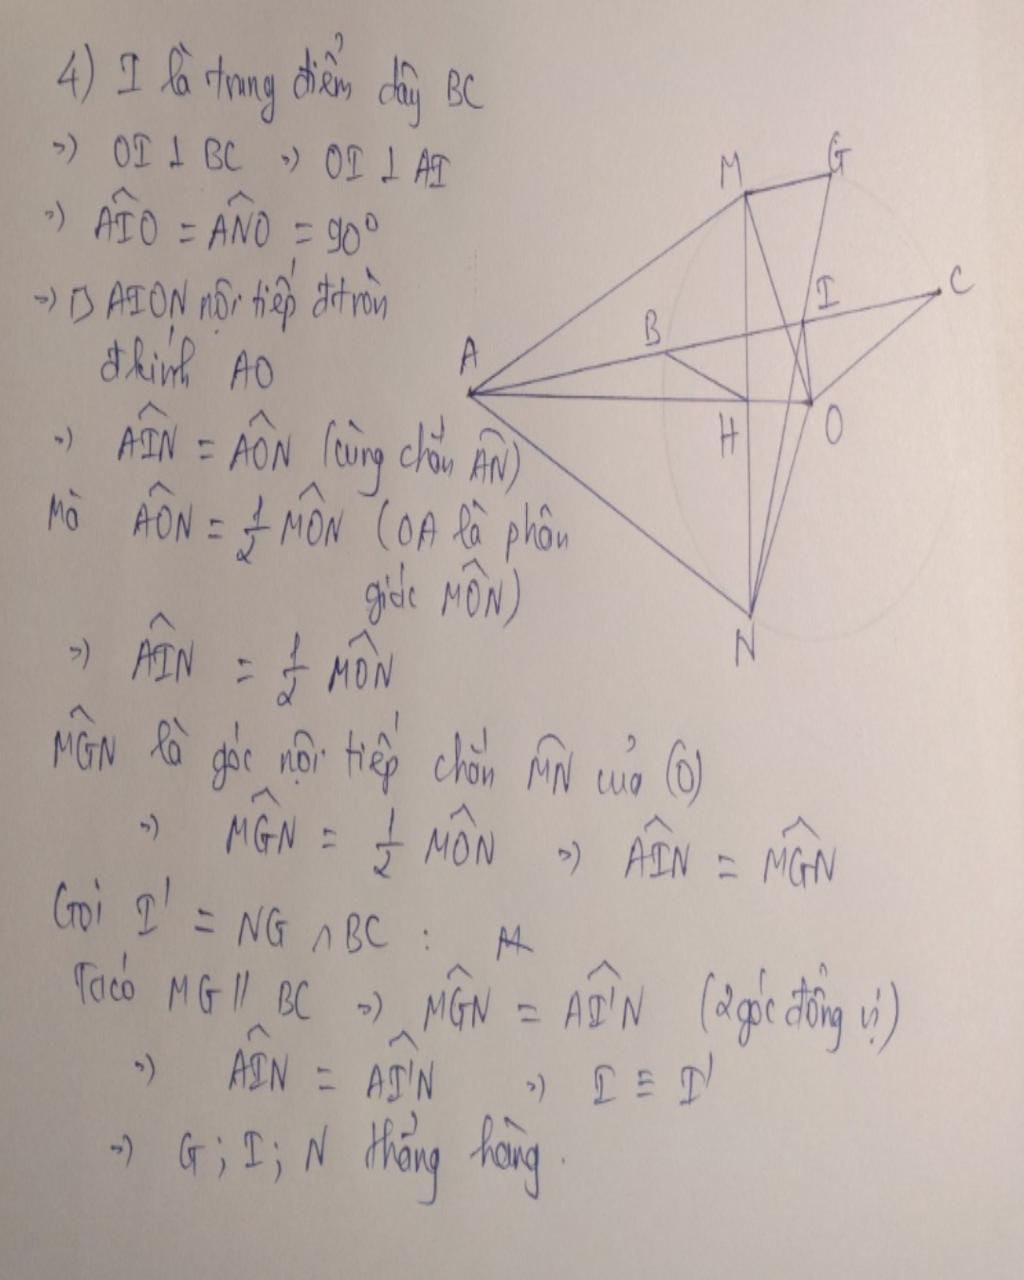 4) I là trung điểm dây BC
=> OI ⊥ BC => OI ⊥ AI
=> AÎO = AN̂O = 90°
=> □ AION nội tiếp đtròn
đkính AO
=> AÎN = AÔN (cùng chắn A͡N)
Mà AÔN = 1/2 MÔN (OA là phân
giác MÔN)
=> AÎN = 1/2 MÔN
MĜN là góc nội tiếp chắn M͡N của (O)
=> MĜN = 1/2 MÔN => AÎN = MĜN
Gọi I' = NG ∩ BC :
Ta có MG // BC => MĜN = AÎ'N (2 góc đồng vị)
=> AÎN = AÎ'N => I ≡ I'
=> G; I; N thẳng hàng.
M
G
C
I
B
A
H
O
N